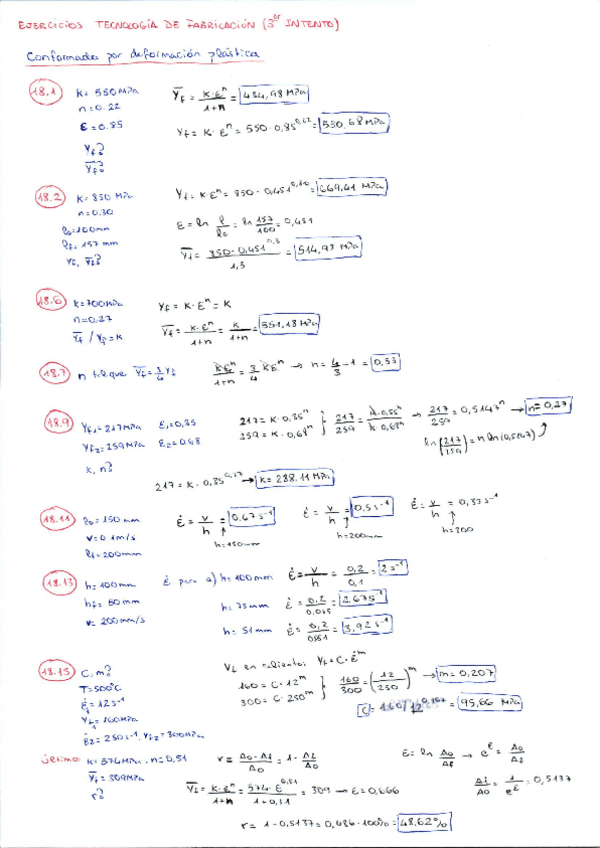 EJERCICIOS TECNOLOGÍA DE FABRICACIÓN (3er INTENTO)
Conformado por deformación plástica
18.1 K = 550 MPa
n = 0.22
ε = 0.85
Yf?
Ȳf?
Ȳf = K·εⁿ / 1+n = 434,98 MPa
Yf = K·εⁿ = 550·0,85^0,22 = 530,68 MPa
18.2 K = 850 MPa
n = 0.30
l₀ = 100mm
lf = 157 mm
Yf, Ȳf?
Yf = K·εⁿ = 850·0,451^0,30 = 669,41 MPa
ε = ln l/l₀ = ln 157/100 = 0,451
Ȳf = 850·0,451^0,3 / 1,3 = 514,93 MPa
18.6 K = 700 MPa
n = 0,27
Ȳf / Yf = K
Yf = K·εⁿ = K
Ȳf = K·εⁿ / 1+n = K / 1+n = 551,18 MPa
18.7 n tq que Ȳf = 3/4 Yf
Kεⁿ / 1+n = 3/4 Kεⁿ → n = 4/3 − 1 = 0,33
18.9 Yf1 = 217 MPa ε1 = 0,35
Yf2 = 259 MPa ε2 = 0,68
K, n?
217 = K·0,35ⁿ
259 = K·0,68ⁿ
217/259 = K·0,35ⁿ / K·0,68ⁿ → 217/259 = 0,5147ⁿ → n = 0,27
ln(217/259) = n ln(0,5147)
217 = K·0,35^0,27 → K = 288,11 MPa
18.11 l₀ = 150 mm
v = 0.1 m/s
lf = 200mm
ε̇ = v/h = 0,67 s⁻¹
h = 150mm
ε̇ = v/h = 0,5 s⁻¹
h = 200mm
ε̇ = v/h = 0,33 s⁻¹
h = 300
18.13 h = 100mm
hf = 50mm
v = 200 mm/s
ε̇ para a) h = 100mm ε̇ = v/h = 0,2/0,1 = 2 s⁻¹
h = 75mm ε̇ = 0,2/0,075 = 2,67 s⁻¹
h = 51mm ε̇ = 0,2/0,051 = 3,92 s⁻¹
18.15 C, m?
T = 500°C
ε̇ = 12 s⁻¹
Yf1 = 160 MPa
ε̇2 = 250 s⁻¹, Yf2 = 300 MPa
Yf en caliente: Yf = C·ε̇^m
160 = C·12^m
300 = C·250^m
160/300 = (12/250)^m → m = 0,207
C = 160/12^0,207 = 95,66 MPa
último: K = 574 MPa, n = 0,51
Ȳf = 309 MPa
r?
r = A₀−Af / A₀ = 1 − Af/A₀
ε = ln A₀/Af → e^ε = A₀/Af
Af/A₀ = 1/e^ε = 0,5137
Ȳf = K·εⁿ / 1+n = 574·ε^0,51 / 1+0,51 = 309 → ε = 0,666
r = 1 − 0,5137 = 0,486·100% = 48,62%